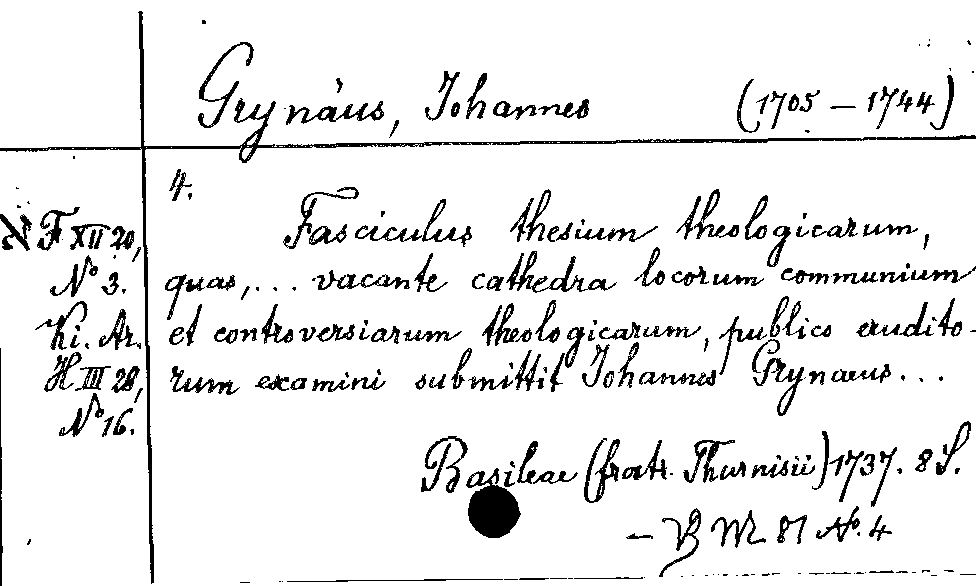 Grynäus, Johannes (1705 – 1744)
4.
Fasciculus thesium theologicarum,
quas,... vacante cathedra locorum communium
et controversiarum theologicarum, publico erudito-
rum examini submittit Johannes Grynaeus...
Basileae (fratr. Thurnisii) 1737. 8 S.
– VB M 81 No. 4
ℵ F XII 20,
No 3.
Ki. Ar.
H III 28,
No 16.